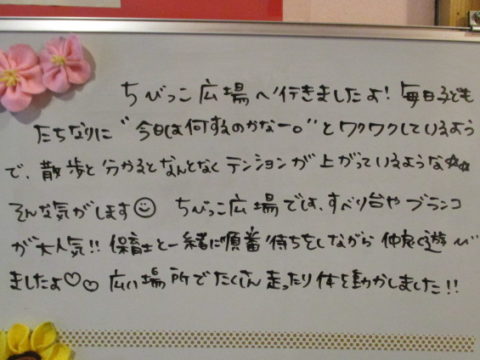 ちびっこ広場へ行きましたよ!毎日子ども
たちなりに"今日は何するのかなー。"とワクワクしているよう
で、散歩と分かるとなんとなくテンションが上がっているような☆☆
そんな気がします☺ ちびっこ広場では、すべり台やブランコ
が大人気!!保育士と一緒に順番待ちをしながら仲良く遊び
ましたよ♡♡広い場所でたくさん走ったり体を動かしました!!